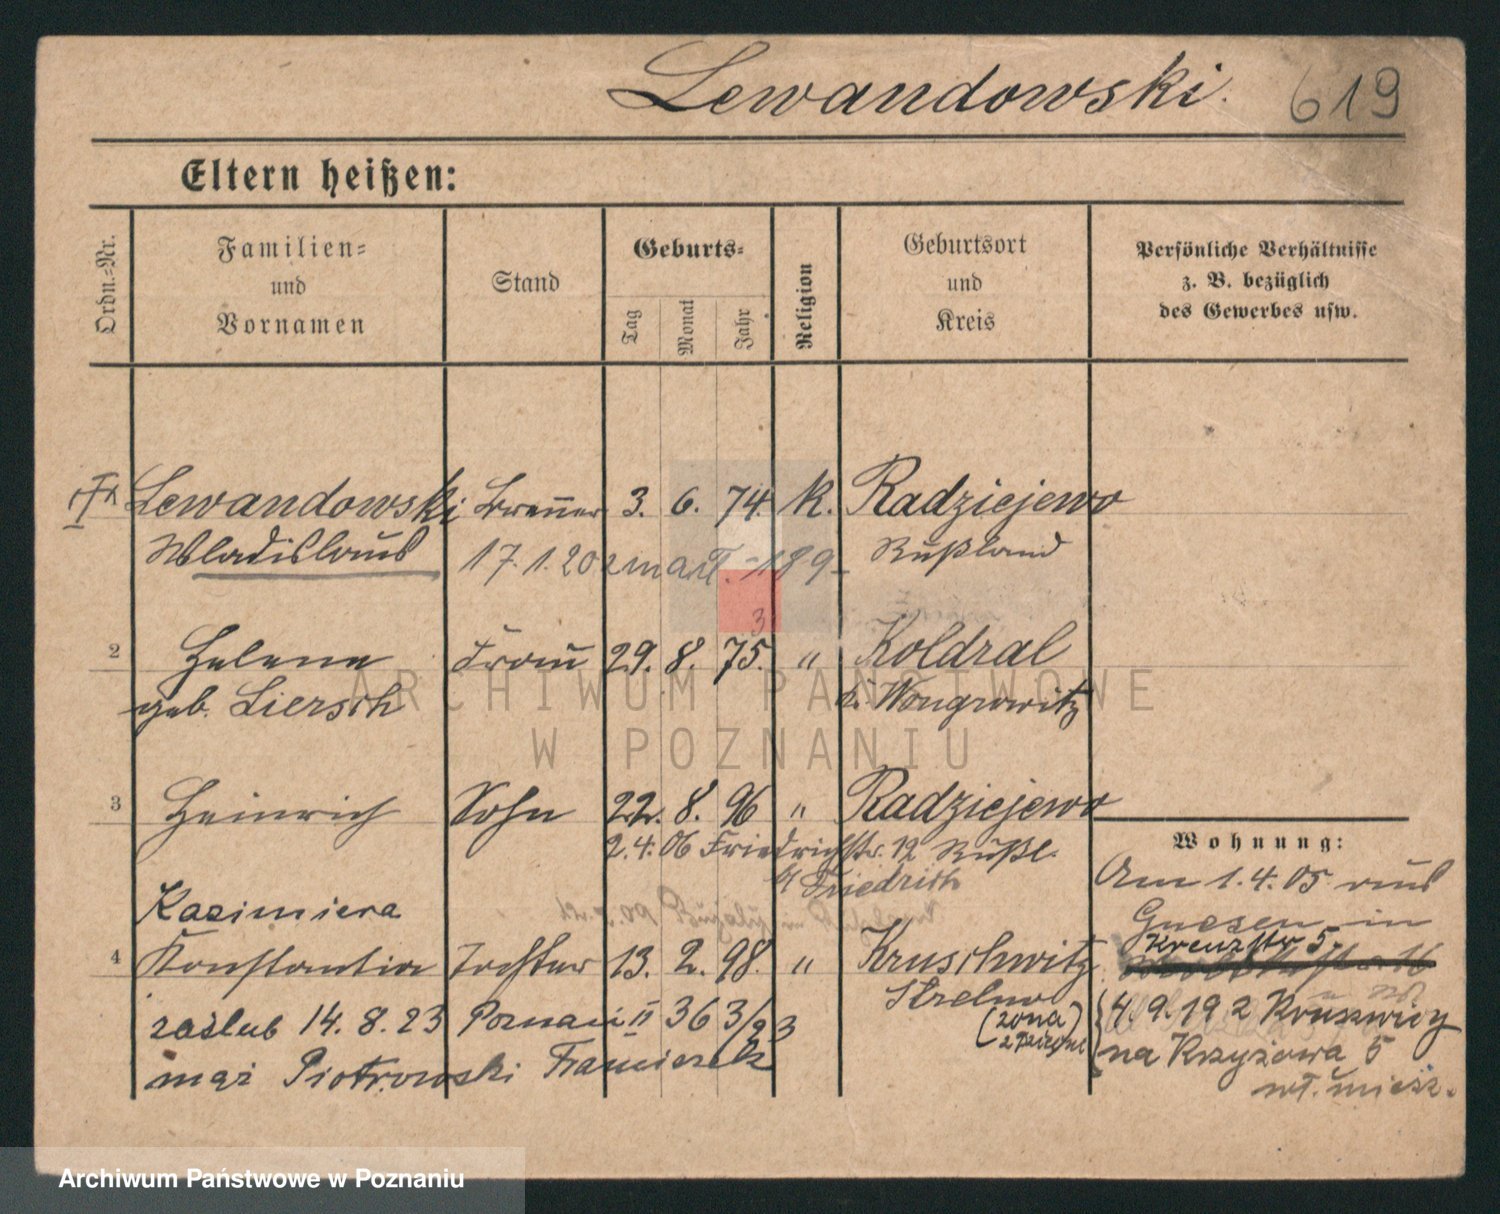 Lewandowski. 619
Eltern heißen:
Ordn.-Nr.
Familien-
und
Vornamen
Stand
Geburts-
Tag
Monat
Jahr
Religion
Geburtsort
und
Kreis
Persönliche Verhältnisse
z. B. bezüglich
des Gewerbes usw.
Lewandowski Brenner 3. 6. 74. K. Radziejewo
Wladislaus 17.1.20 zmarł. - 189 - Rußland
2 Helene Frau 29. 8. 75. " Koldral
geb. Liersch K. Wongrowitz
3 Heinrich Sohn 22. 8. 96 " Radziejewo
2.4.06 Friedrichstr. 12 Rußl.
b/ Friedrich
Wohnung:
Am 1.4.05 aus
Gnesen in
Kreuzstr 5.
Kazimiera
4 Konstantia Tochter 13. 2. 98. " Kruschwitz
Strelno
zaślub 14. 8. 23 Poznań II 363/23
(żona)
mąż Piotrowski Franciszek
4.9.192 Kruszwicy
na Krzyżowa 5
ARCHIWUM PAŃSTWOWE
W POZNANIU
Archiwum Państwowe w Poznaniu